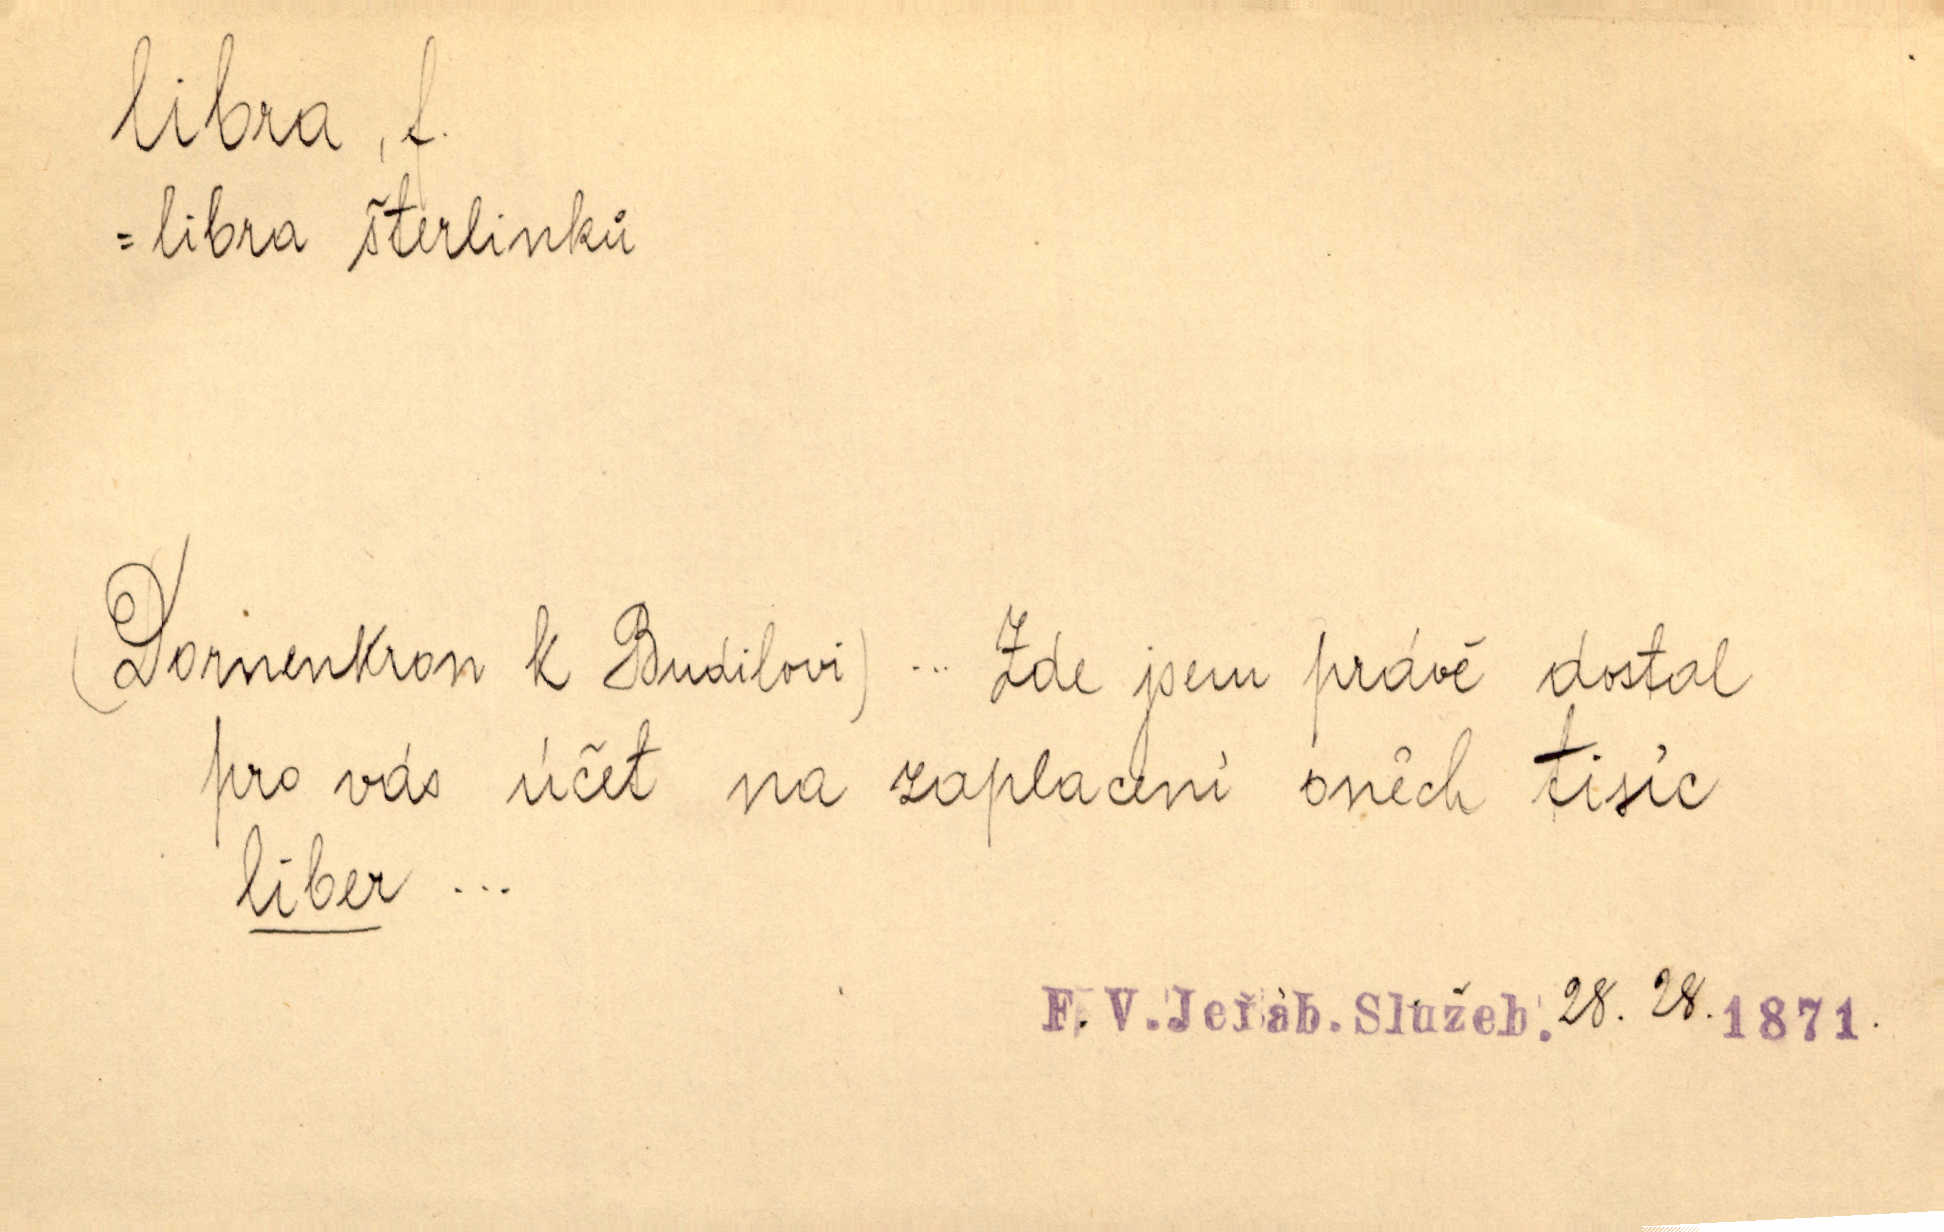 libra, f.
= libra šterlinků
(Dornenkron k Budilovi) ... Zde jsem právě dostal
pro vás účet na zaplacení oněch tisíc
liber ...
F. V. Jeřáb. Služeb. 28. 28. 1871.